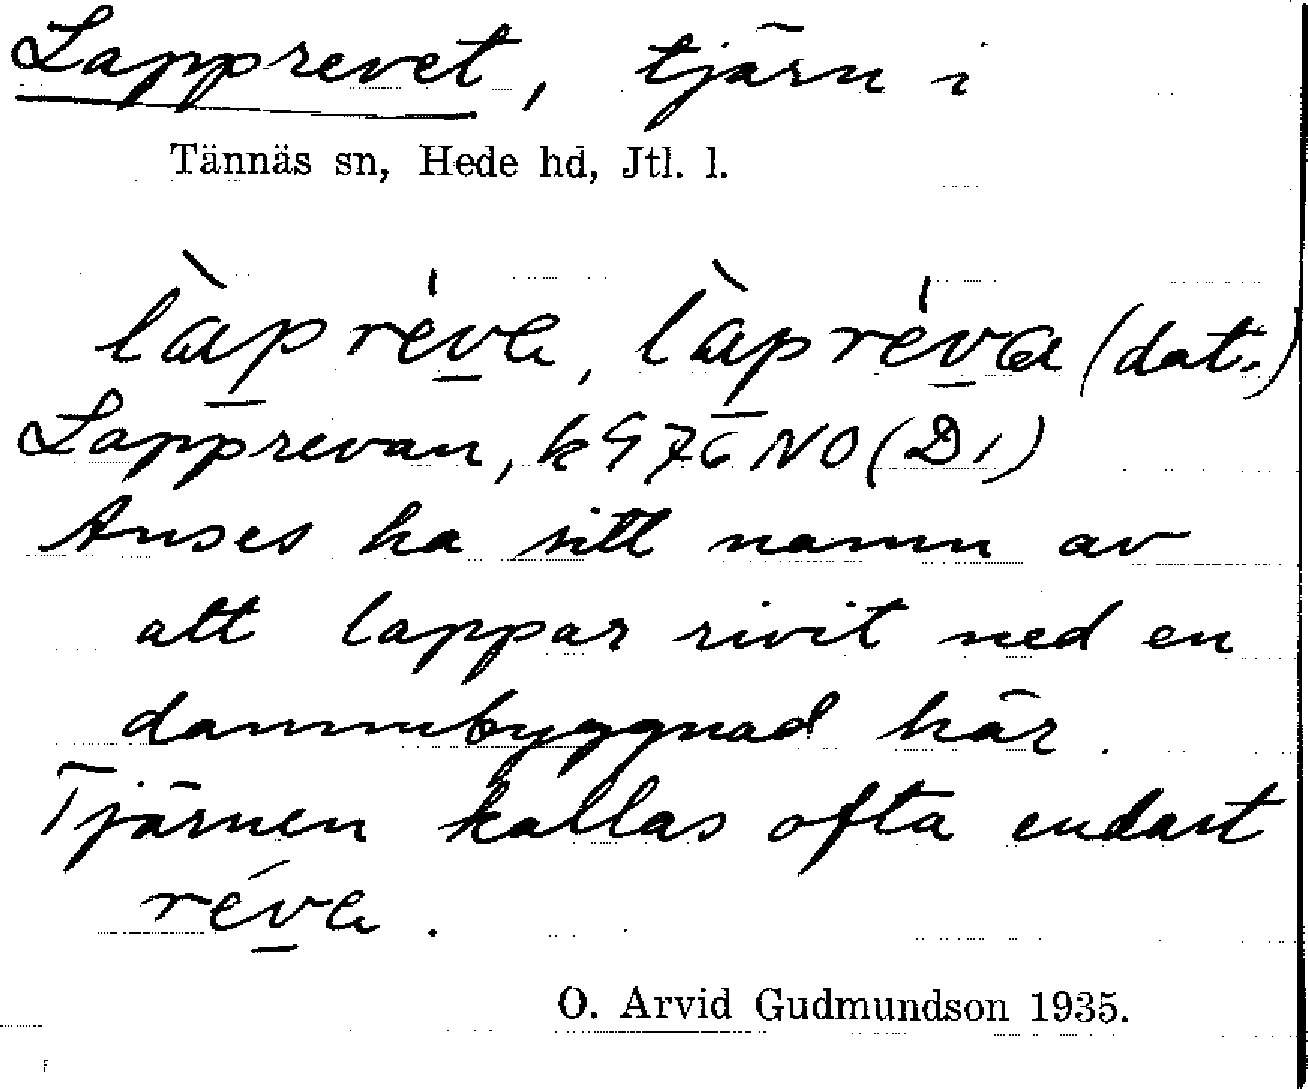 Lapprevet, tjärn i
Tännäs sn, Hede hd, Jtl. l.
làpréva, làpréva (dat.)
Lapprevan, k976NO (D1)
Anses ha sitt namn av
att lappar rivit ned en
dammbyggnad här.
Tjärnen kallas ofta endast
réva.
O. Arvid Gudmundson 1935.